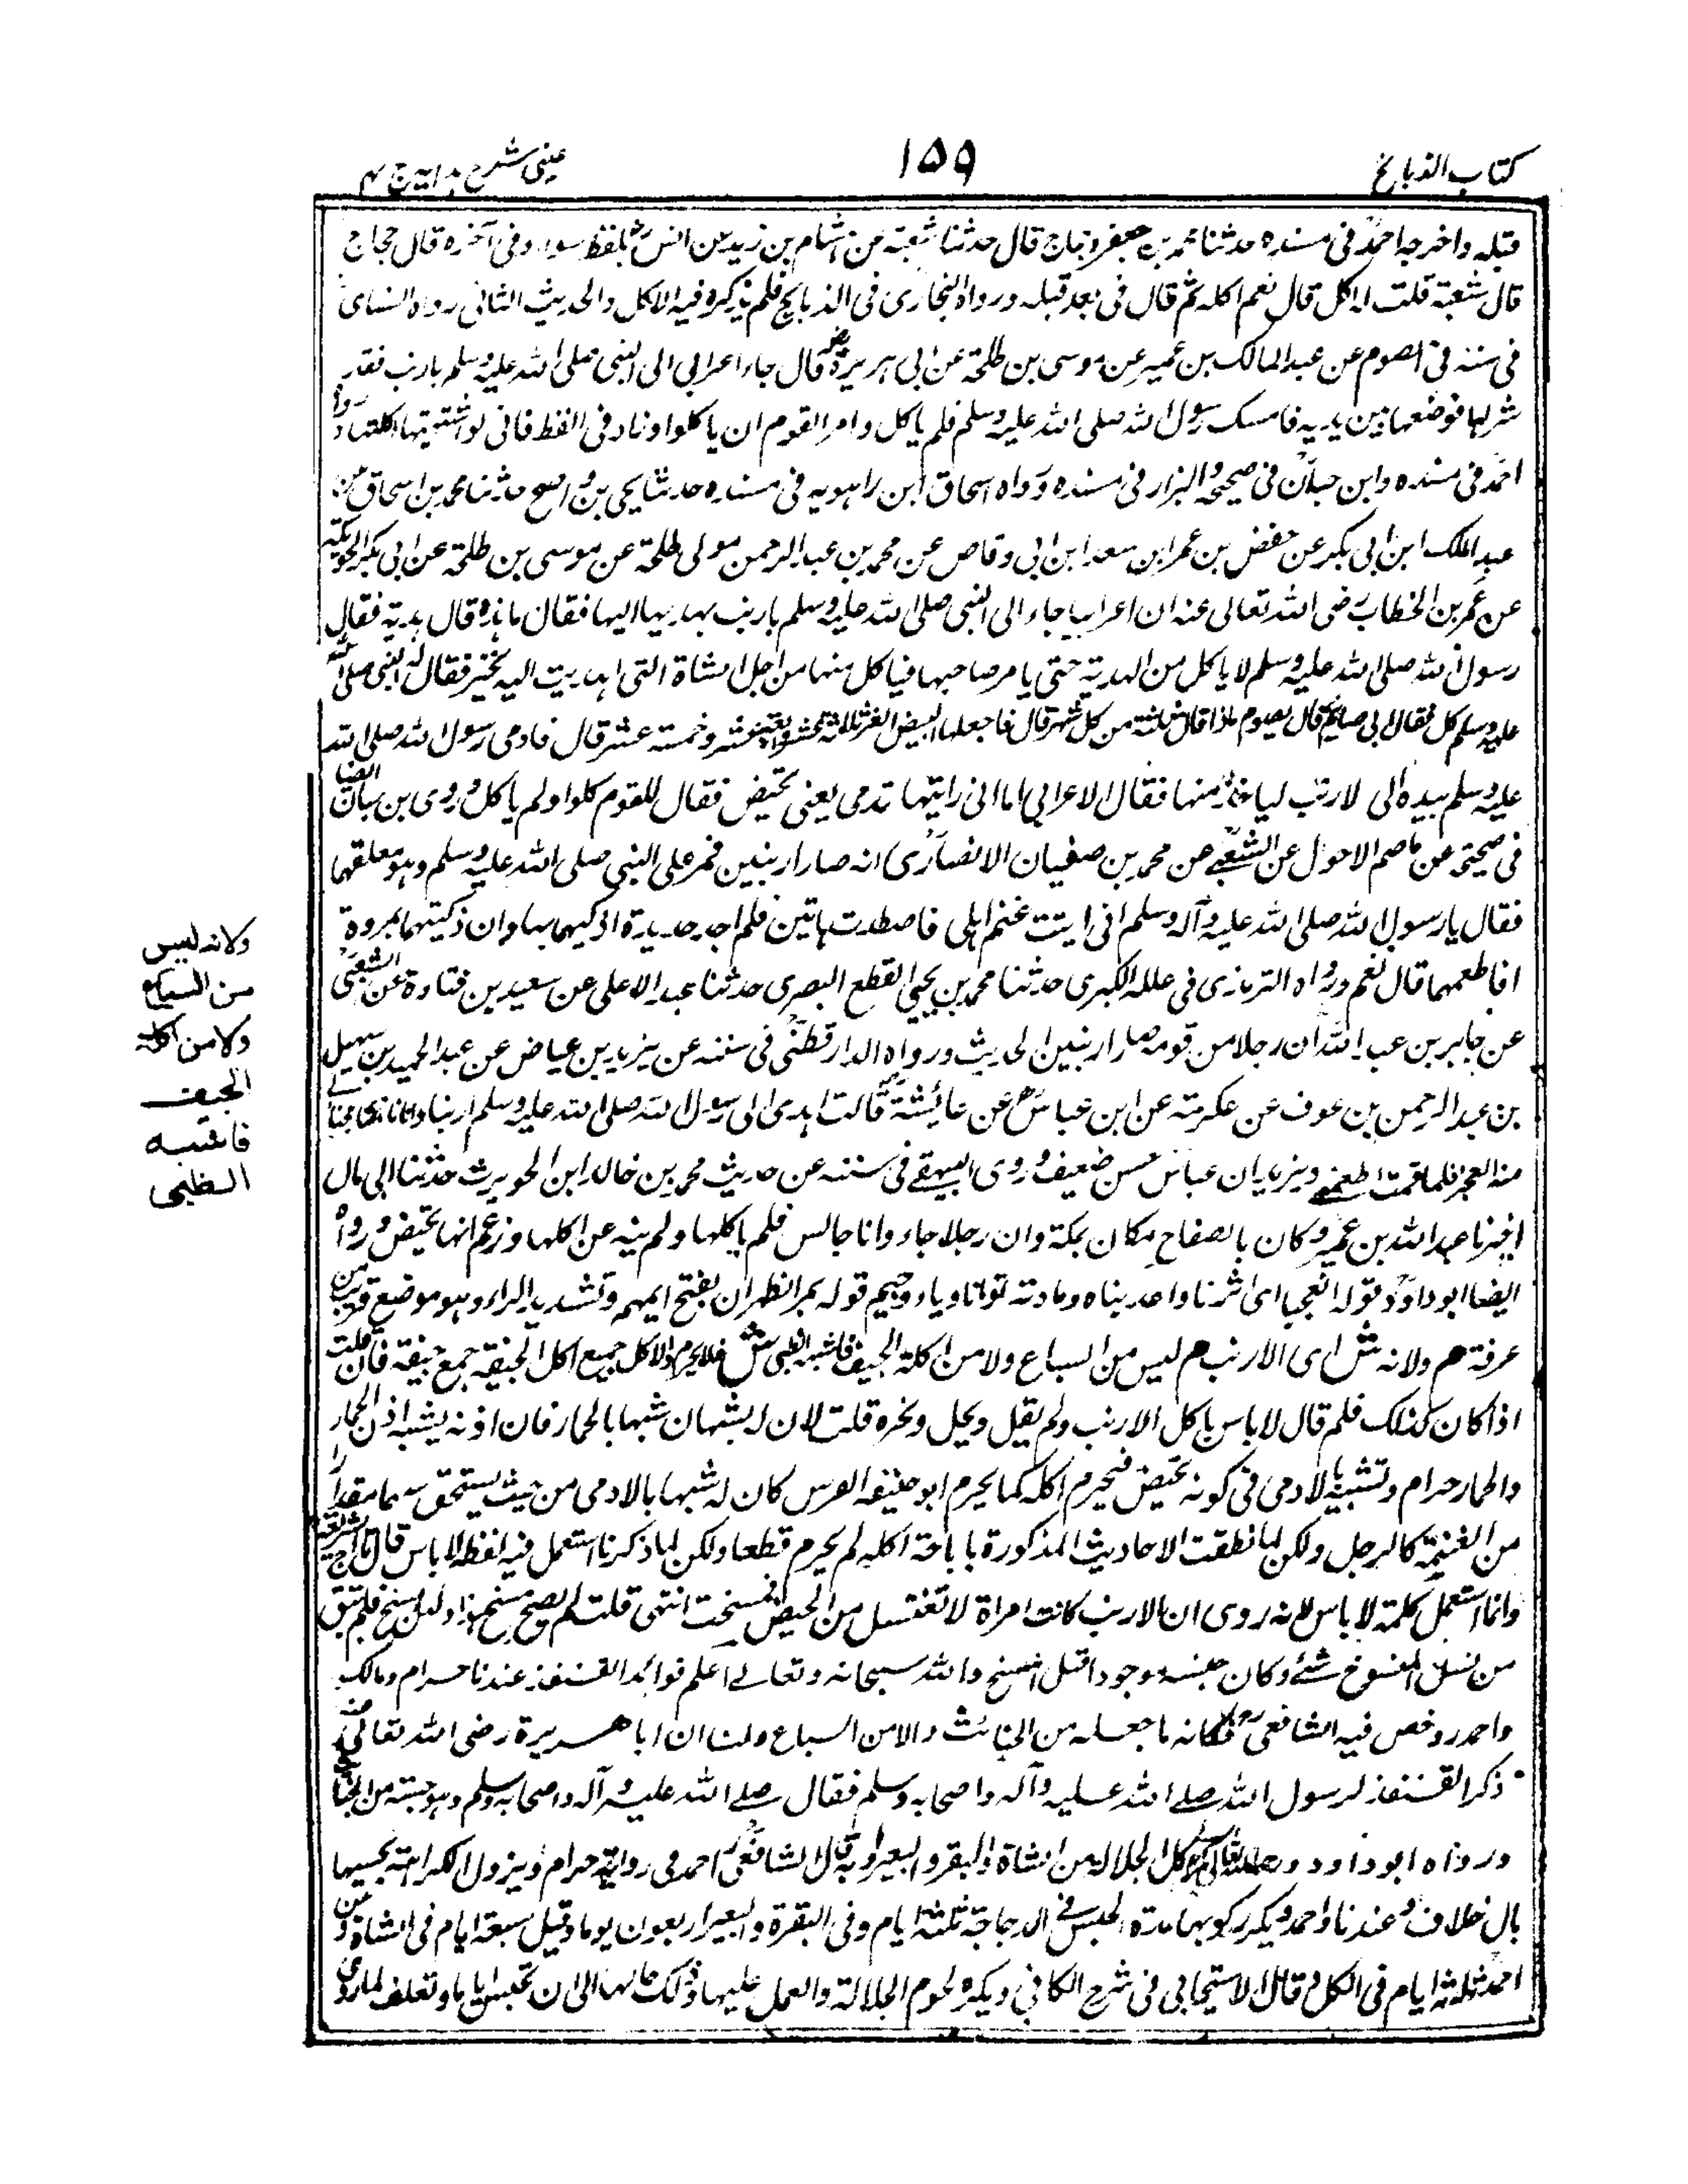 كتاب الذبائح
١٥٩
عينى شرح هداية ج ٤
قبله واخرجه احمد فى مسنده حدثنا محمد بن جعفر وحجاج قال حدثنا شعبة عن هشام بن زيد عن انس بلفظ سواء وفى آخره قال حجاج
قال شعبة قلت له اكل قال نعم اكله ثم قال فى بعد قبله ورواه البخارى فى الذبائح فلم يذكره فيه الاكل والحديث الثانى رواه النسائ
فى سننه فى الصوم عن عبد المالك بن عمير عن موسى بن طلحة عن ابى هريرة قال جاء اعرابى الى النبى صلى الله عليه وسلم بارنب فقد
شولها فوضعها بين يديه فامسك رسول الله صلى الله عليه وسلم فلم ياكل وامر القوم ان ياكلوا وزاد فى الفظ فانى لو اشتهيتها اكلتها ورواه
احمد فى مسنده وابن حبان فى صحيحه والبزار فى مسنده ورواه اسحاق ابن راهويه فى مسنده حدثنا يحيى بن واضح حدثنا محمد بن اسحاق عن
عبد الملك ابن ابى بكر عن حفص بن عمر ابن سعد ابن ابى وقاص عن محمد بن عبد الرحمن مولى طلحة عن موسى بن طلحة عن ابى بكر الحوتكية
عن عمر بن الخطاب رضى الله تعالى عنه ان اعرابيا جاء الى النبى صلى الله عليه وسلم بارنب بهديها اليها فقال ما هذه قال هدية فقال
رسول الله صلى الله عليه وسلم لا ياكل من الهدية حتى يامر صاحبها فياكل منها من اجل الشاة التى اهديت اليه بخيبر فقال له النبى صلى الله
عليه وسلم كل فقال انى صائم قال يصوم ماذا قال ثلثة من كل شهر قال فاجعلها البيض الغر ثلاثة عشر واربعة عشر وخمسة عشر قال فادمى رسول الله صلى الله
عليه وسلم بيده الى لارنب لياخذ منها فقال الاعرابى اما انى رايتها تدمى يعنى تحيض فقال للقوم كلوا ولم ياكل وروى بن حبان ايضا
فى صحيحه عن عاصم الاحول عن الشعبى عن محمد بن صفيان الانصارى انه صاد ارنبين فمر على النبى صلى الله عليه وسلم وهو معلقهما
فقال يا رسول الله صلى الله عليه وآله وسلم انى رايت غنم اهلى فاصطدت هاتين فلم اجد حديدة اذكيهما بها وان ذكيتهما بمروة
افاطعمهما قال نعم ورواه الترمذى فى علله الكبرى حدثنا محمد بن يحيى القطع البصرى حدثنا عبد الاعلى عن سعيد بن قتادة عن الشعبى
عن جابر بن عبد الله ان رجلا من قومه صاد ارنبين الحديث ورواه الدارقطنى فى سننه عن يزيد بن عياض عن عبد الحميد بن سهيل
بن عبد الرحمن بن عوف عن عكرمة عن ابن عباس عن عائشة قالت اهدى الى رسول الله صلى الله عليه وسلم ارنبا وانا نائمة فخبأ لى
منه العجز فلما قمت اطعمنى ويزيد بن عباض ضعيف وروى البيهقى فى سننه عن حديث محمد بن خالد ابن الحويرث حدثنا ابى قال
اخبرنا عبد الله بن عمير وكان بالصفاح مكان بمكة وان رجلا جاء وانا جالس فلم ياكلها ولم ينه عن اكلها وزعم انها تحيض ورواه
ايضا ابو داود قوله انفجبا اى اثرنا واعديناه ومادته نون وفاء وجيم قوله بمر الظهران بفتح الميم وتشديد الراء وهو موضع قريب من
عرفة هم ولانه ش اى الارنب م ليس من السباع ولا من اكلة الجيف فاشبه الظبى ش فلا يحرم والاكل جميع اكل الجيفة جمع جيفة فان قلت
اذا كان كذلك فلم قال لا باس باكل الارنب ولم يقيل ويحل ونحره قلت لان له شبهان شبها بالحمار فان اذنه يشبه اذن الحمار
والحمار حرام وتشبيها بالادمى فى كونه تحيض فيحرم اكله كما يحرم ابو حنيفة الفرس كان له شبها بالادمى من حيث يستحق سهما مقدرا
من الغنيمة كالرجل ولكن لما نطقت الاحاديث المذكورة باباحة اكله لم يحرم قطعا ولكن لما ذكرنا استعمل فيه لفظه لا باس قال تاج الشريعة
وانما استعمل كلمة لا باس لانه روى ان الارنب كانت امراة لا تغتسل من الحيض فمسخت انتهى قلت لم يصح مسخ هذا ولئن مسخ فلم تبق
من نسل الممسوخ شئ وكان جنسه موجودا قبل المسخ والله سبحانه وتعالى اعلم فوائد القنفذ عندنا حرام ومالك
واحمد روخص فيه الشافعى فكانه ما جعله من الخبائث والامن السباع ولنا ان ابا هريرة رضى الله تعالى عنه
ذكر القنفذ لرسول الله صلى الله عليه وآله واصحابه وسلم فقال صلى الله عليه وآله واصحابه وسلم هو خبيثة من الخبائث
ورواه ابو داود اكل الجلالة من الشاة والبقر والبعير وبه قال الشافعى احمد فى رواية حرام ويزول الكراهة بحبسها
بال خلاف وعندنا واحمد ويكره ركوبها مدة الحبس فى الدجاجة ثلثة ايام وفى البقرة والبعير اربعون يوما وقيل سبعة ايام فى الشاة وعن
احمد ثلثة ايام فى الكل وقال الاسبيجابى فى شرح الكافى ويكره لحوم الجلالة والعمل عليها وذلك حالها الى ان تحبس اياما وتعلف لما روى
ولانه ليس
من السباع
ولا من اكلة
الجيف
فاشبه
الظبى